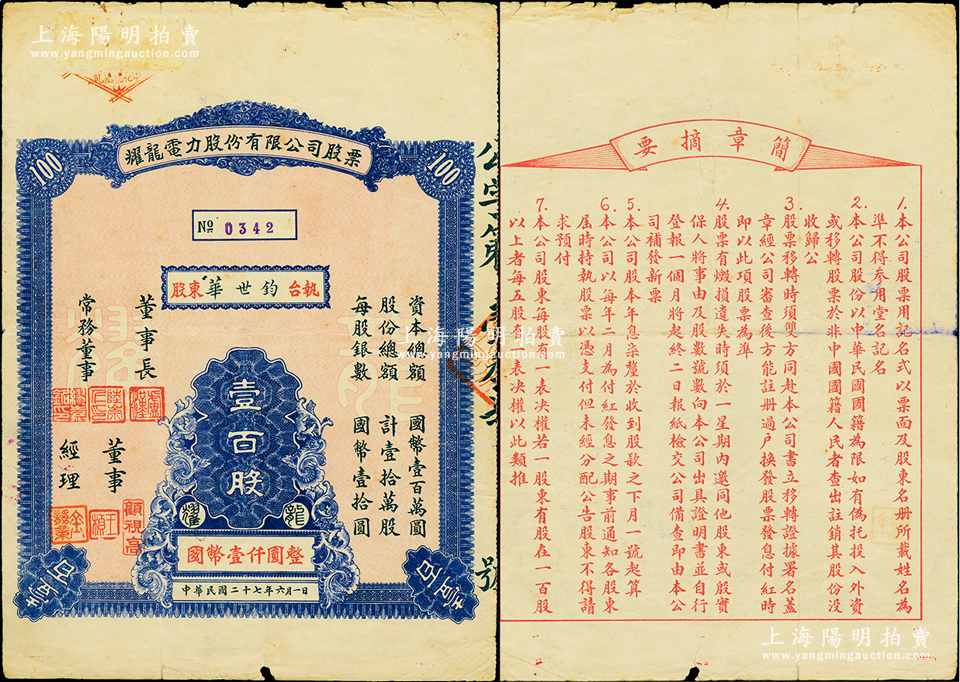 上海陽明拍賣
www.yangmingauction.com
耀龍電力股份有限公司股票
100
100
No 0342
執台 鈞世華 東股
資本總額 國幣壹百萬圓
股份總額 計壹拾萬股
每股銀數 國幣壹拾圓
董事長
常務董事
董事
經理
顧視高
壹百股
耀
龍
國幣壹仟圓整
中華民國二十七年六月一日
壹百
壹百
號
上海陽明拍賣
www.yangmingauction.com
簡章摘要
1. 本公司股票用記名式以票面及股東名冊所載姓名為
準不得參用堂名記名
2. 本公司股份以中華民國國籍為限如有偽托投入外資
或移轉股票於非中國國籍人民者查出註銷其股份沒
收歸公
3. 股票移轉時須雙方同赴本公司書立移轉證據署名蓋
章經公司審查後方能註冊過戶換發股票發息付紅時
即以此項股票為準
4. 股票有燬損遺失時須於一星期內邀同他股東或殷實
保人將事由及股數號數向本公司出具證明書並自行
登報一個月將起終二日報紙檢交公司備查即由本公
司補發新票
5. 本公司股本年息柒釐於收到股款之下月一號起算
6. 本公司以每年二月為付紅發息之期事前通知各股東
屆時持執股票以憑支付但未經分配公告股東不得請
求預付
7. 本公司股東每股有一表決權若一股東有股在一百股
以上者每五股有一表決權以此類推
上海陽明拍賣
www.yangmingauction.com